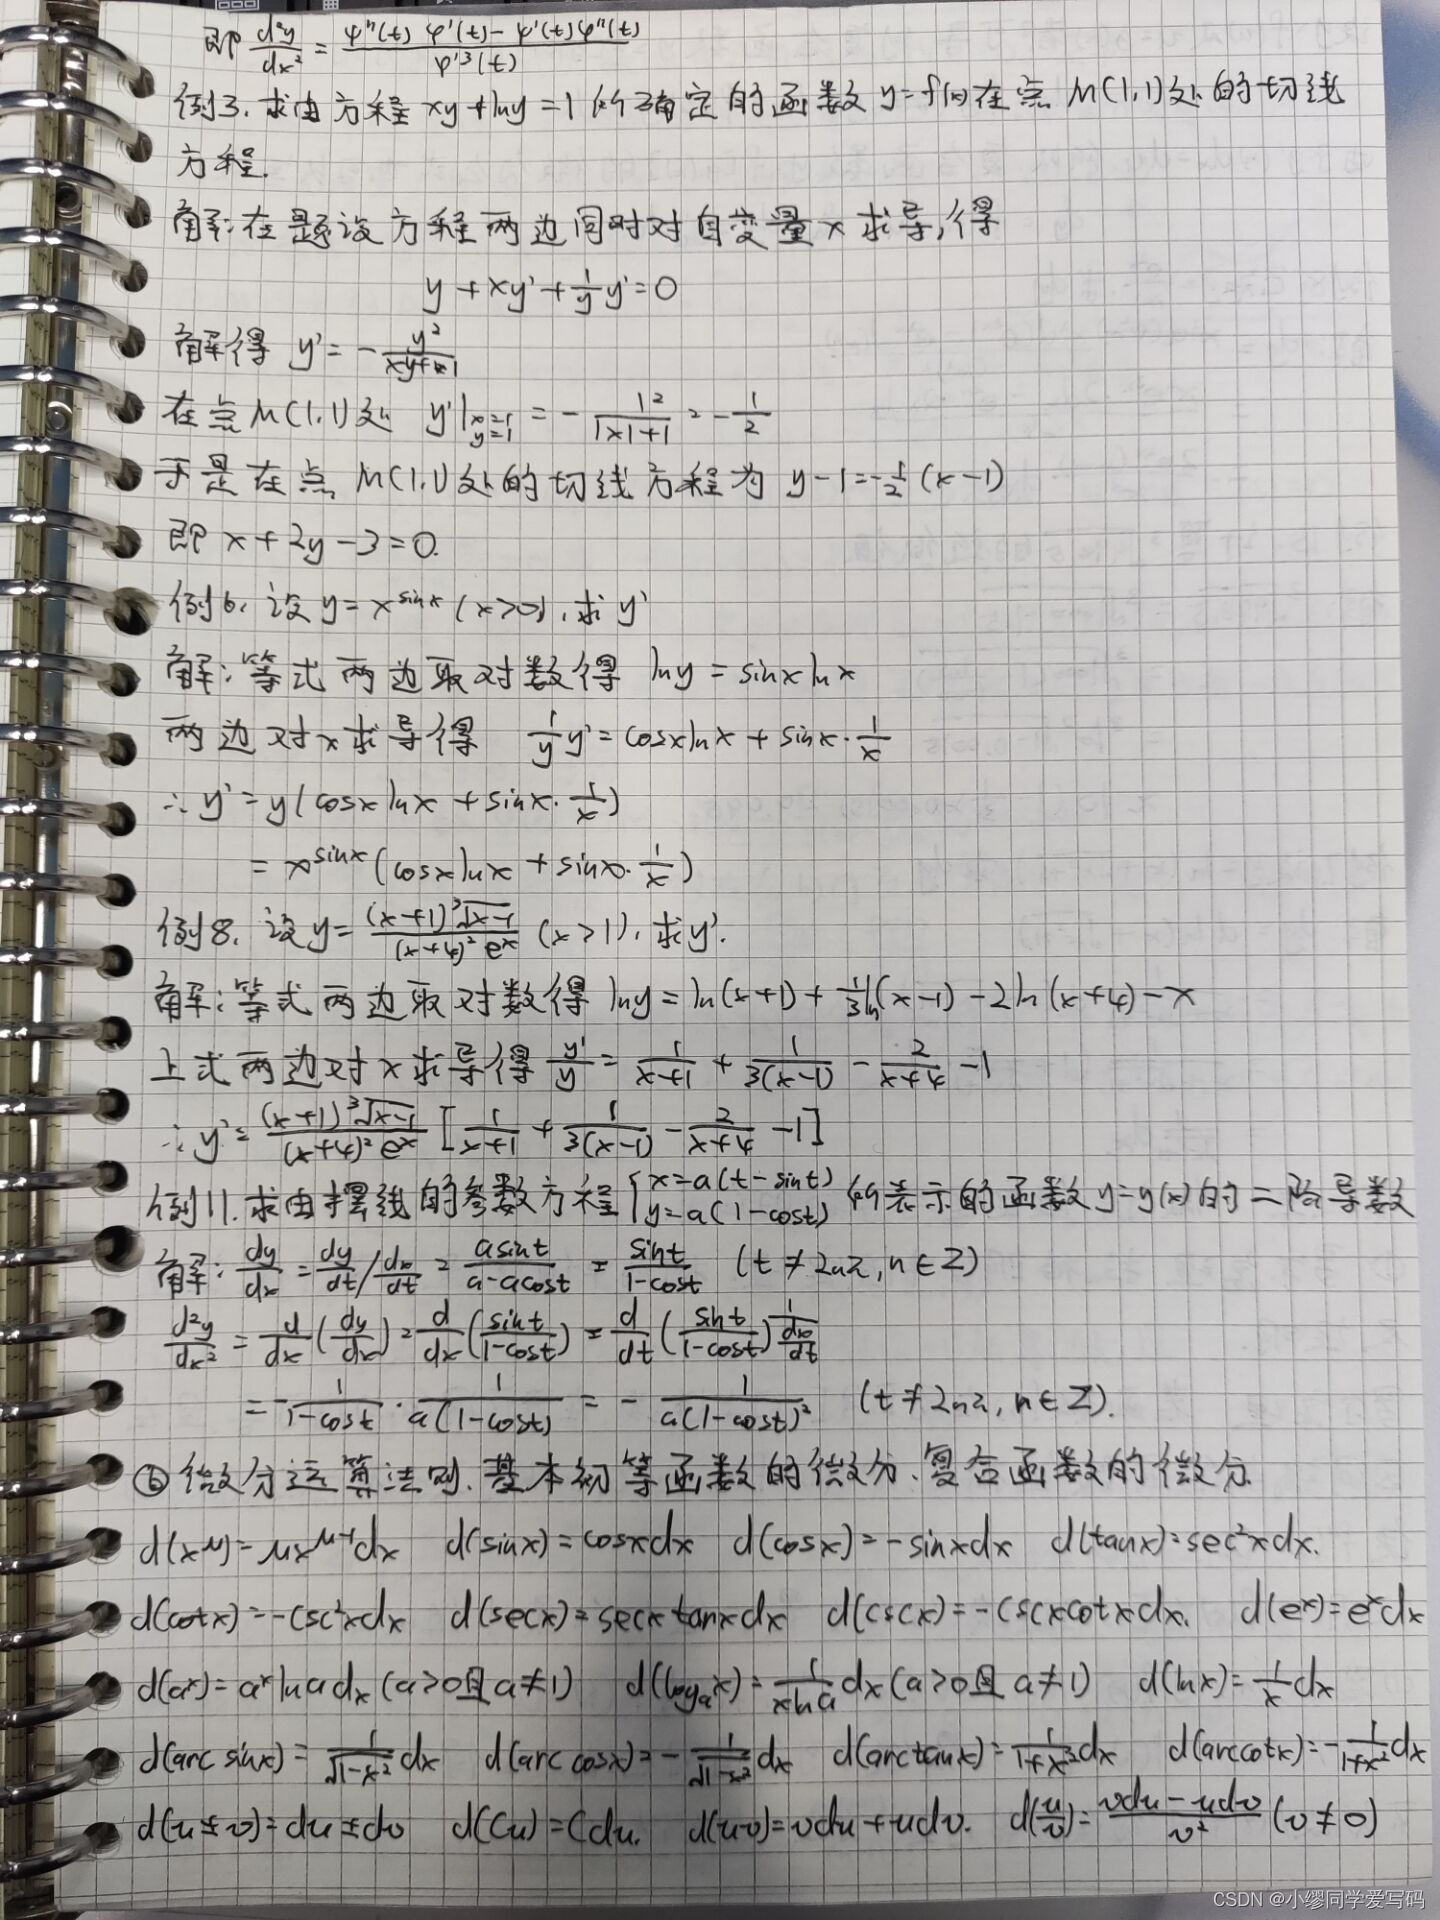 即 d²y/dx² = (ψ''(t)φ'(t) - ψ'(t)φ''(t))/φ'³(t)
例3. 求由方程 xy+lny=1 所确定的函数 y=f(x) 在点 M(1,1)处的切线
方程.
解:在题设方程两边同时对自变量 x 求导,得
y + xy' + (1/y)y' = 0
解得 y' = -y²/(xy+1)
在点 M(1,1)处 y'|x=1 y=1 = -1²/(1×1+1) = -1/2
于是在点 M(1,1)处的切线方程为 y-1=-1/2(x-1)
即 x+2y-3=0.
例6. 设 y=x^sinx (x>0),求 y'
解:等式两边取对数得 lny = sinx lnx
两边对x求导得 (1/y)y' = cosx lnx + sinx·1/x
∴ y' = y(cosx lnx + sinx·1/x)
= x^sinx (cosx lnx + sinx·1/x)
例8. 设 y= (x+1)³√(x-1)/((x+4)² e^x) (x>1),求 y'.
解:等式两边取对数得 lny = ln(x+1) + 1/3 ln(x-1) - 2ln(x+4) - x
上式两边对x求导得 y'/y = 1/(x+1) + 1/(3(x-1)) - 2/(x+4) - 1
∴ y' = (x+1)³√(x-1)/((x+4)² e^x) [1/(x+1) + 1/(3(x-1)) - 2/(x+4) - 1]
例11. 求由摆线的参数方程 {x=a(t-sint) y=a(1-cost) 所表示的函数 y=y(x) 的二阶导数
解: dy/dx = dy/dt / dx/dt = asint/(a-acost) = sint/(1-cost) (t≠2nπ, n∈Z)
d²y/dx² = d/dx(dy/dx) = d/dx(sint/(1-cost)) = d/dt(sint/(1-cost)) 1/(dx/dt)
= -1/(1-cost) · 1/(a(1-cost)) = -1/(a(1-cost)²) (t≠2nπ, n∈Z).
⑥ 微分运算法则.基本初等函数的微分.复合函数的微分.
d(x^μ)=μx^(μ-1)dx d(sinx)=cosxdx d(cosx)=-sinxdx d(tanx)=sec²xdx.
d(cotx)=-csc²xdx d(secx)=secxtanxdx d(cscx)=-cscxcotxdx. d(e^x)=e^xdx
d(a^x)=a^x lna dx (a>0且a≠1) d(logₐx)=1/(xlna) dx (a>0且a≠1) d(lnx)=1/x dx
d(arcsinx)=1/√(1-x²) dx d(arccosx)=-1/√(1-x²) dx d(arctanx)=1/(1+x²) dx d(arccotx)=-1/(1+x²) dx
d(u±v)=du±dv d(Cu)=Cdu. d(uv)=vdu+udv. d(u/v)=(vdu-udv)/v² (v≠0)
CSDN @小缪同学爱写码